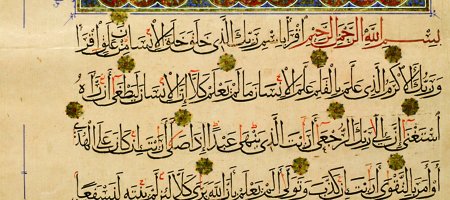 بسم الله الرحمن الرحيم اقرأ باسم ربك الذي خلق خلق الإنسان من علق اقرأ
وربك الأكرم الذي علم بالقلم علم الإنسان ما لم يعلم كلا إن الإنسان ليطغى أن رآه
استغنى إن إلى ربك الرجعى أرأيت الذي ينهى عبدا إذا صلى أرأيت إن كان على الهدى
أو أمر بالتقوى أرأيت إن كذب وتولى ألم يعلم بأن الله يرى كلا لئن لم ينته لنسفعا